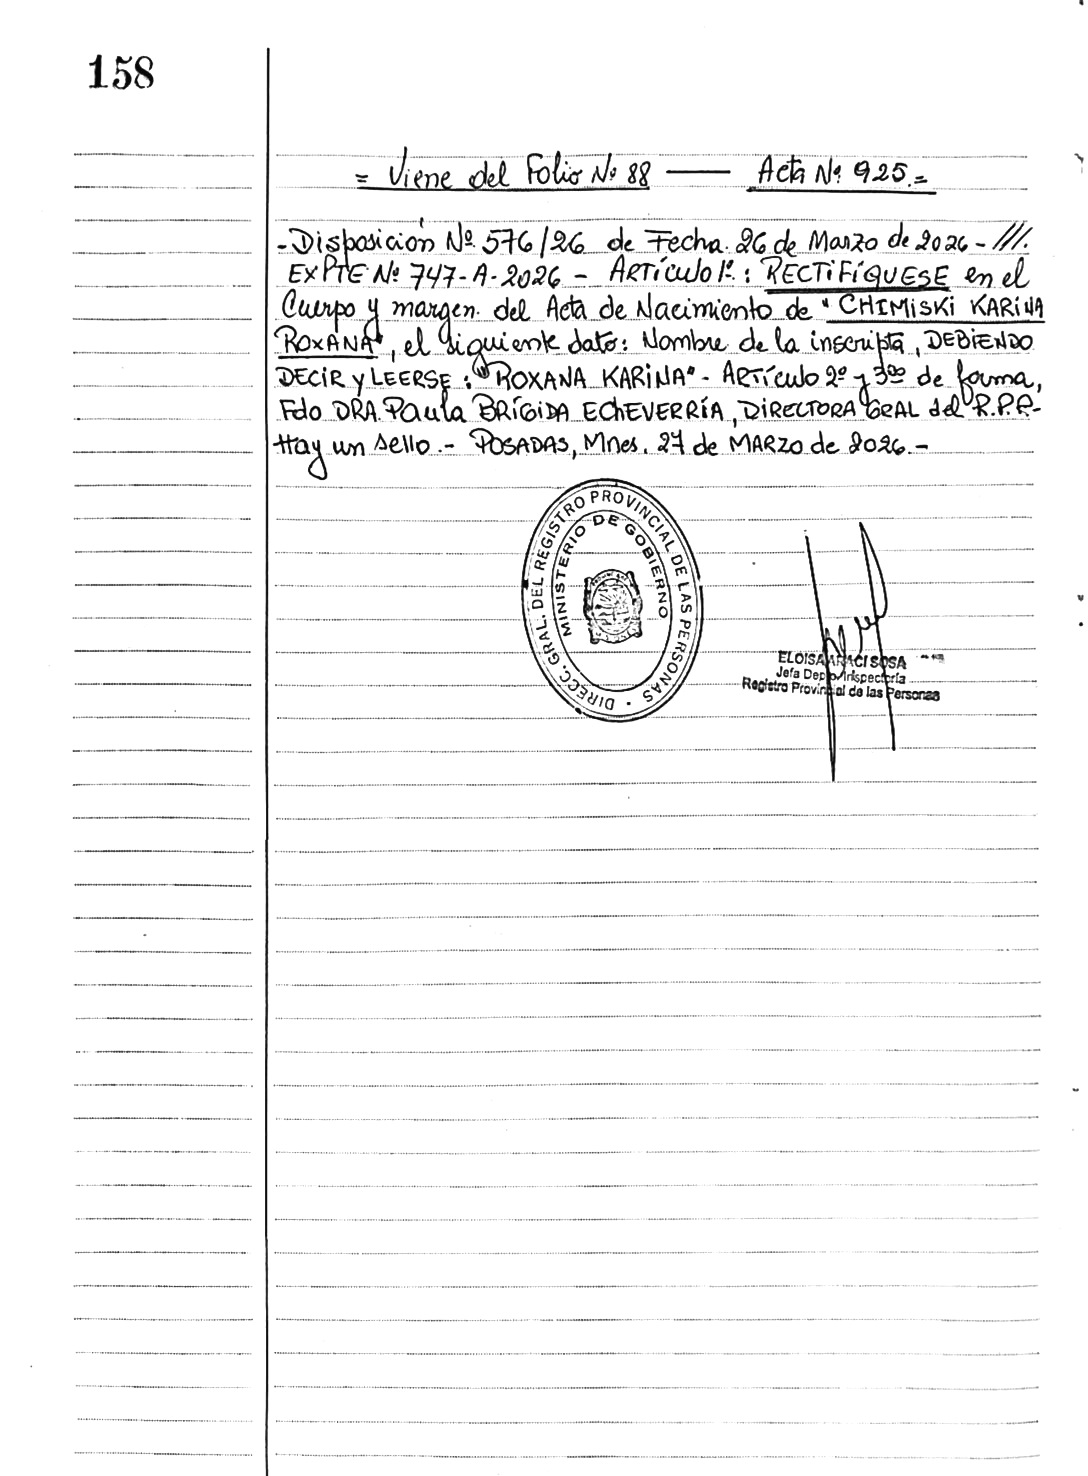 158
= Viene del Folio Nº 88 —— Acta Nº 925.=
-Disposición Nº 576/26 de Fecha 26 de Marzo de 2026 - ///.
EXPTE Nº 747-A-2026 - ARTÍCULO 1º: RECTIFÍQUESE en el
Cuerpo y margen del Acta de Nacimiento de "CHIMISKI KARINA
ROXANA", el siguiente dato: Nombre de la inscripta, DEBIENDO
DECIR y LEERSE: "ROXANA KARINA" - ARTÍCULO 2º y 3º de forma,
Fdo DRA. Paula BRÍGIDA ECHEVERRÍA, DIRECTORA GRAL del R.P.P.-
Hay un sello.- POSADAS, Mnes. 27 de MARZO de 2026.-
DIRECC. GRAL. DEL REGISTRO PROVINCIAL DE LAS PERSONAS
MINISTERIO DE GOBIERNO
ELOISA ARACI SOSA
Jefa Depto Inspectoría
Registro Provincial de las Personas